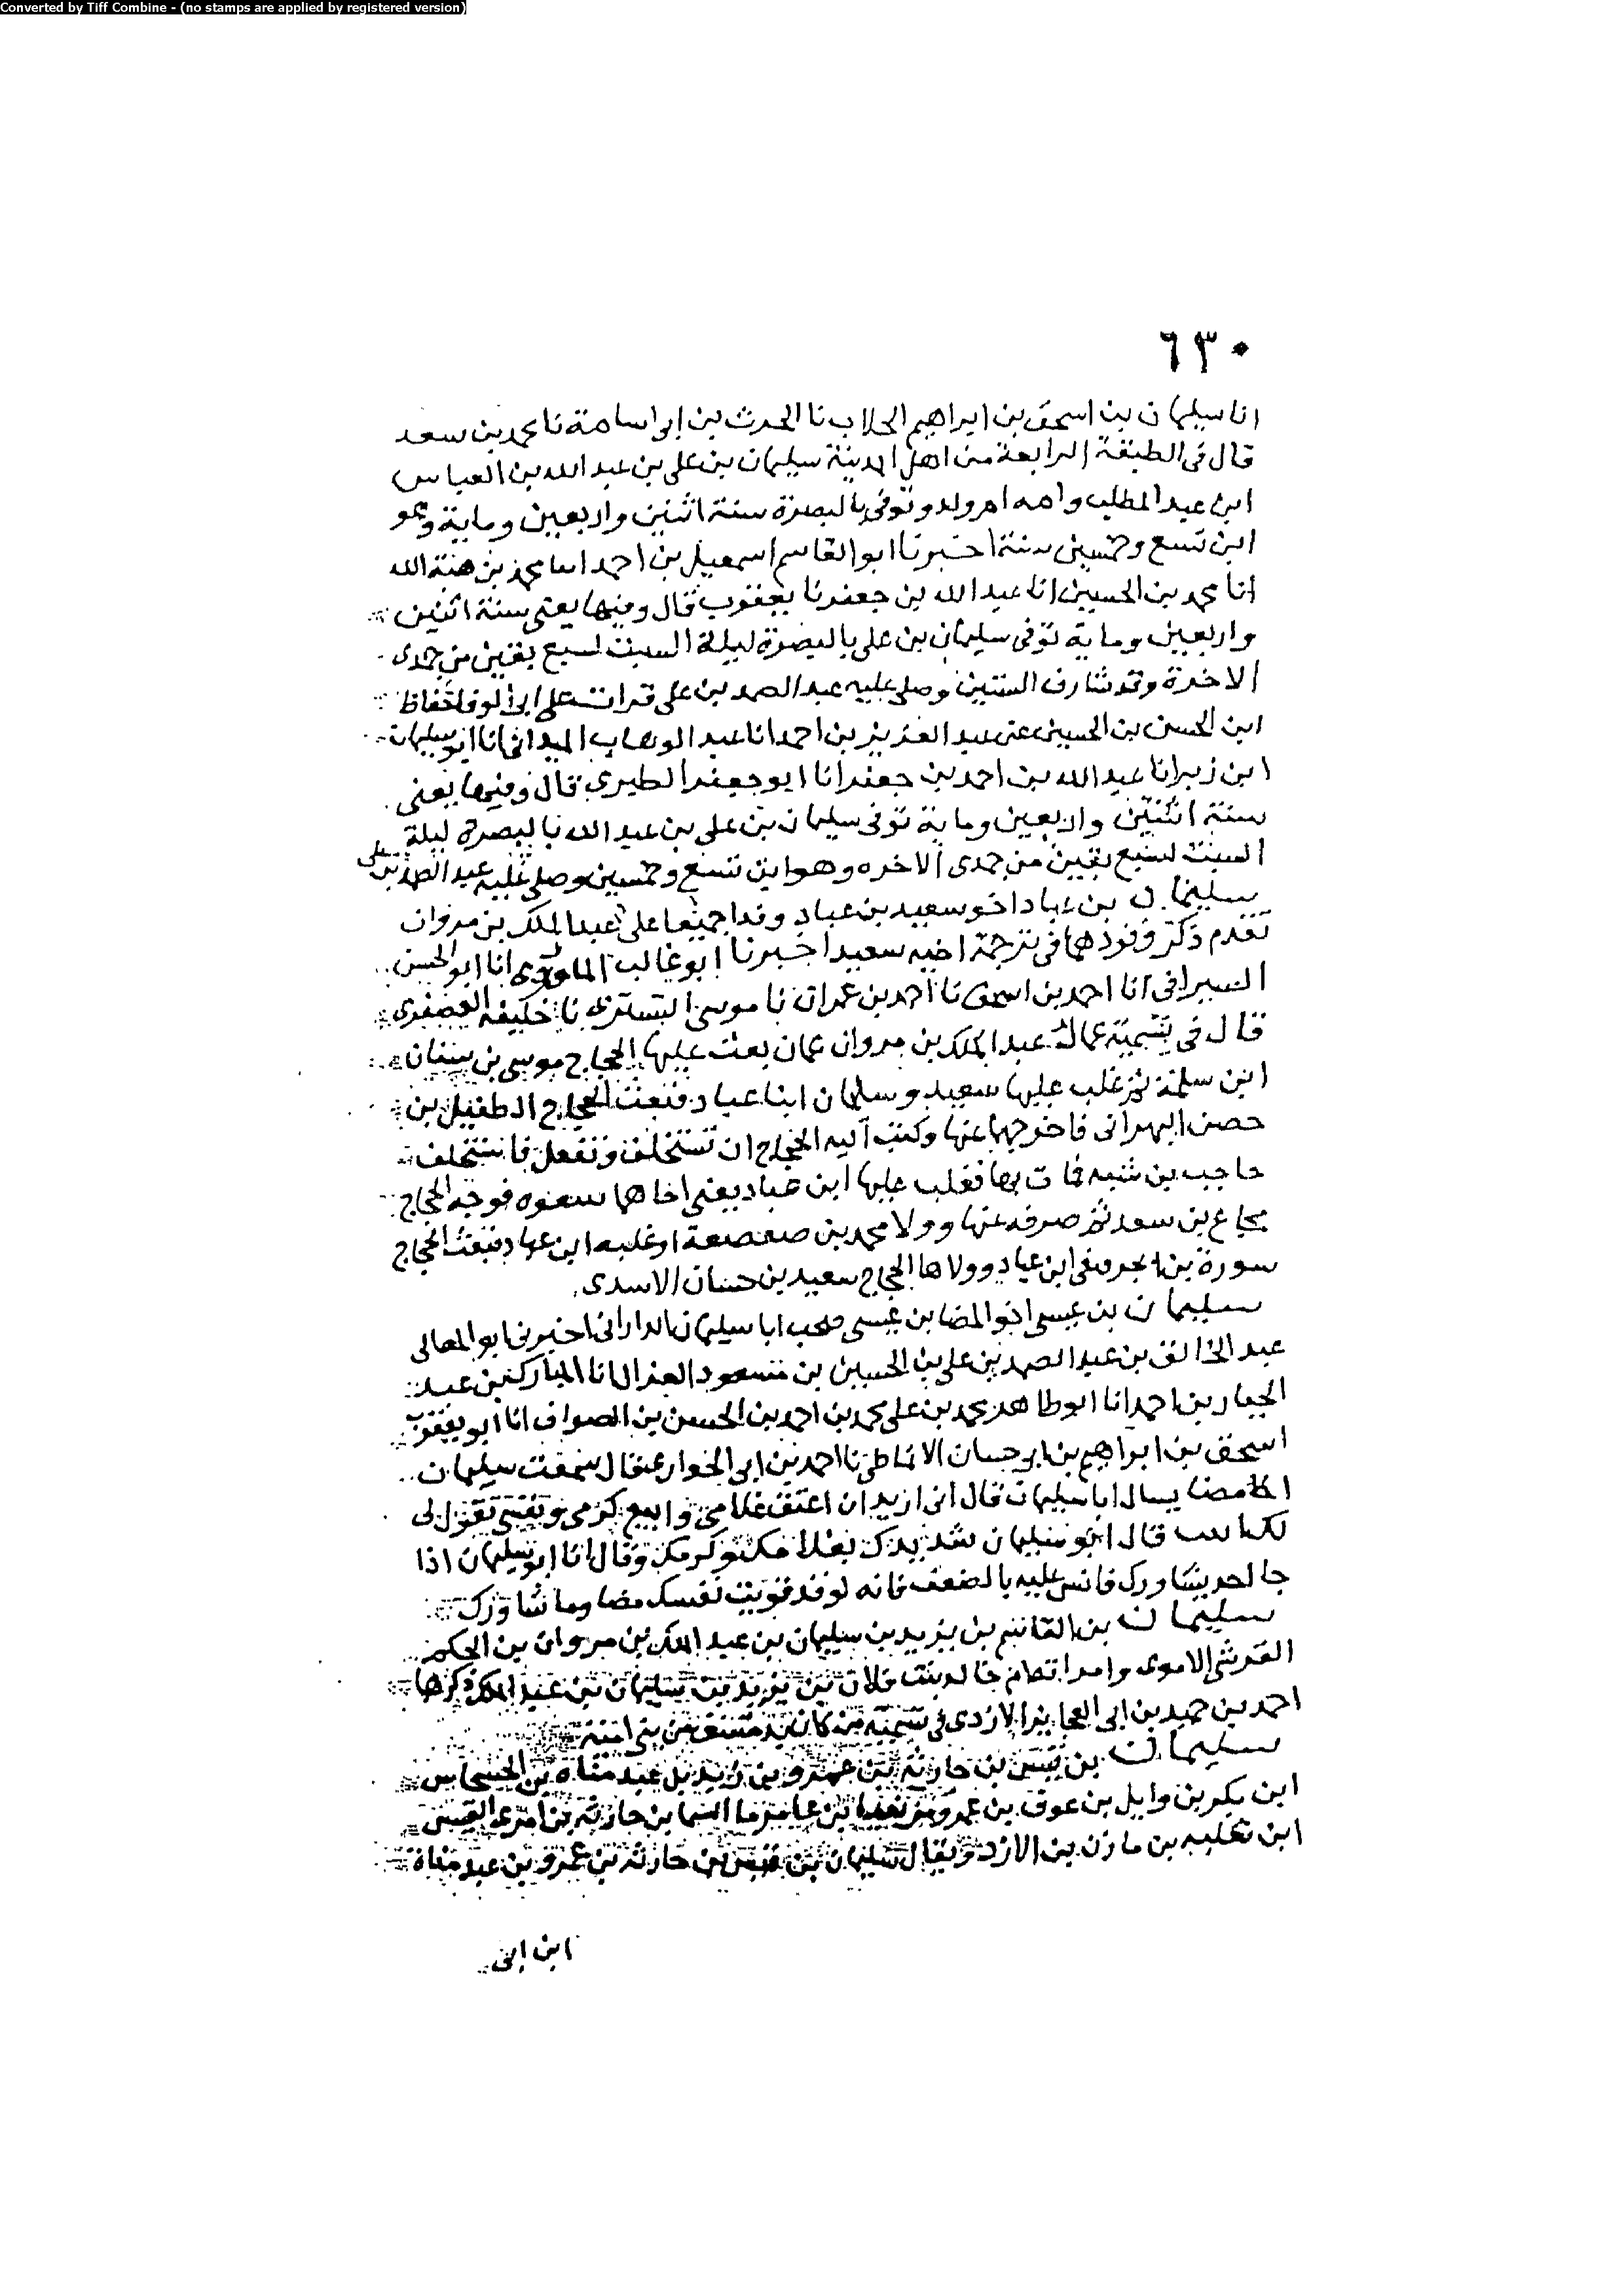 Converted by Tiff Combine - (no stamps are applied by registered version)
٦٣٠
انا سليمان بن اسحق بن ابراهيم الجلاب نا الحرث بن ابى اسامة نا محمد بن سعد
قال فى الطبقة الرابعة من اهل المدينة سليمان بن على بن عبد الله بن العباس
ابن عبد المطلب وامه ام ولد وتوفى بالبصرة سنة اثنين واربعين وماية وهو
ابن تسع وخمسين سنة اخبرنا ابو القاسم اسمعيل بن احمد انا محمد بن هبة الله
انا محمد بن الحسين انا عبد الله بن جعفر نا يعقوب قال وفيها يعنى سنة اثنين
واربعين وماية توفى سليمان بن على بالبصرة ليلة السبت لسبع بقين من جمدى
الاخرة وقد شارف الستين وصلى عليه عبد الصمد بن على قرات على ابى الوفا حفاظ
ابن الحسن بن الحسين عن عبد العزيز بن احمد انا عبد الوهاب الميدانى انا ابو سليمان
ابن زبر انا عبد الله بن احمد بن جعفر انا ابو جعفر الطبري قال وفيها يعنى
سنة اثنتين واربعين وماية توفى سليمان بن على بن عبد الله بالبصرة ليلة
السبت لسبع بقين من جمدى الاخره وهو ابن تسع وخمسين وصلى عليه عبد الصمد بن على
سليمان بن عباد اخو سعيد بن عباد وفدا جميعا على عبد الملك بن مروان
تقدم ذكر وفودهما فى ترجمة اخيه سعيد اخبرنا ابو غالب الماوردى انا ابو الحسن
السيرافى انا احمد بن اسحق نا احمد بن عمران نا موسى التسترى نا خليفه العصفرى
قال فى تسمية عمال عبد الملك بن مروان عمان بعث عليها الحجاج موسى بن سنان
ابن سلمة ثم غلب عليها سعيد وسليمان ابنا عباد فبعث الحجاج الطفيل بن
حصن البهرانى فاخرجهما عنها وكتب اليه الحجاج ان تستخلف وتفعل فاستخلف
حاجب بن شيبه فمات بها فغلب عليها ابن عباد يعنى اخاهما سعوه فوجه الحجاج
مجاع بن سعد ثم صرفه عنها وولا محمد بن صعصعة او غلبه ابن عباد فبعث الحجاج
سورة بن ابجر فنفى ابن عباد وولاها الحجاج سعيد بن حسان الاسدى
سليمان بن عيسى اخو المضا بن عيسى صحب ابا سليمان الدارانى اخبرنى ابو المعالى
عبد الخالق بن عبد الصمد بن على بن الحسين بن مسعود الغزال انا المبارك بن عبد
الجبار بن احمد انا ابو طاهر محمد بن على محمد بن احمد بن الحسن بن الصواف انا ابو يعقوب
اسحق بن ابراهيم بن ابى حسان الانماطى نا احمد بن ابى الحوارى قال سمعت سليمان
اخا مضا يسال ابا سليمان قال انى اريد ان اعتق غلامى وابيع كرمى تقول لى
قال ابو سليمان شد يدك وكرمك وقال انا ابو سليمان اذا
جا احد يشاورك فانس عليه بالضعف فانه لو قد قويت نفسك مضا وما شاورك
سليمان بن القاسم بن يزيد بن سليمان بن عبد الملك بن مروان بن الحكم
القرشى الاموى وامراته ام خالد بنت فلان بن يزيد بن سليمان بن عبد الملك ذكرها
احمد بن حميد بن ابى العجايز الازدى فى تسمية من كان بدمشق من بنى امية
سليمان بن قيس بن حارثة بن عمرو بن زيد بل عبد مناة بن الحسحاس
ابن بكر بن وايل بن عوف بن عمرو بن عامر ما السما بن حارثه بن امرى القيس
ابن ثعلبه بن مازن بن الازد ويقال سليمان بن قيس بن حارثه بن عمرو بن عبد مناة
ابن ابى